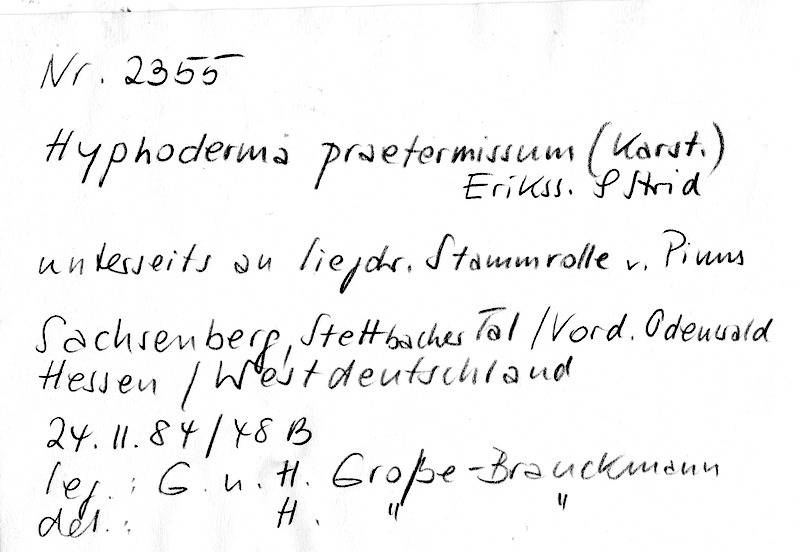 Nr. 2355
Hyphoderma praetermissum (Karst.)
Erikss. & Strid
unterseits an liegdr. Stammrolle v. Pinus
Sachsenberg, Stettbacher Tal / Vord. Odenwald
Hessen / Westdeutschland
24.11.84 / 48 B
leg.: G. u. H. Große-Brauckmann
det.: H. " "